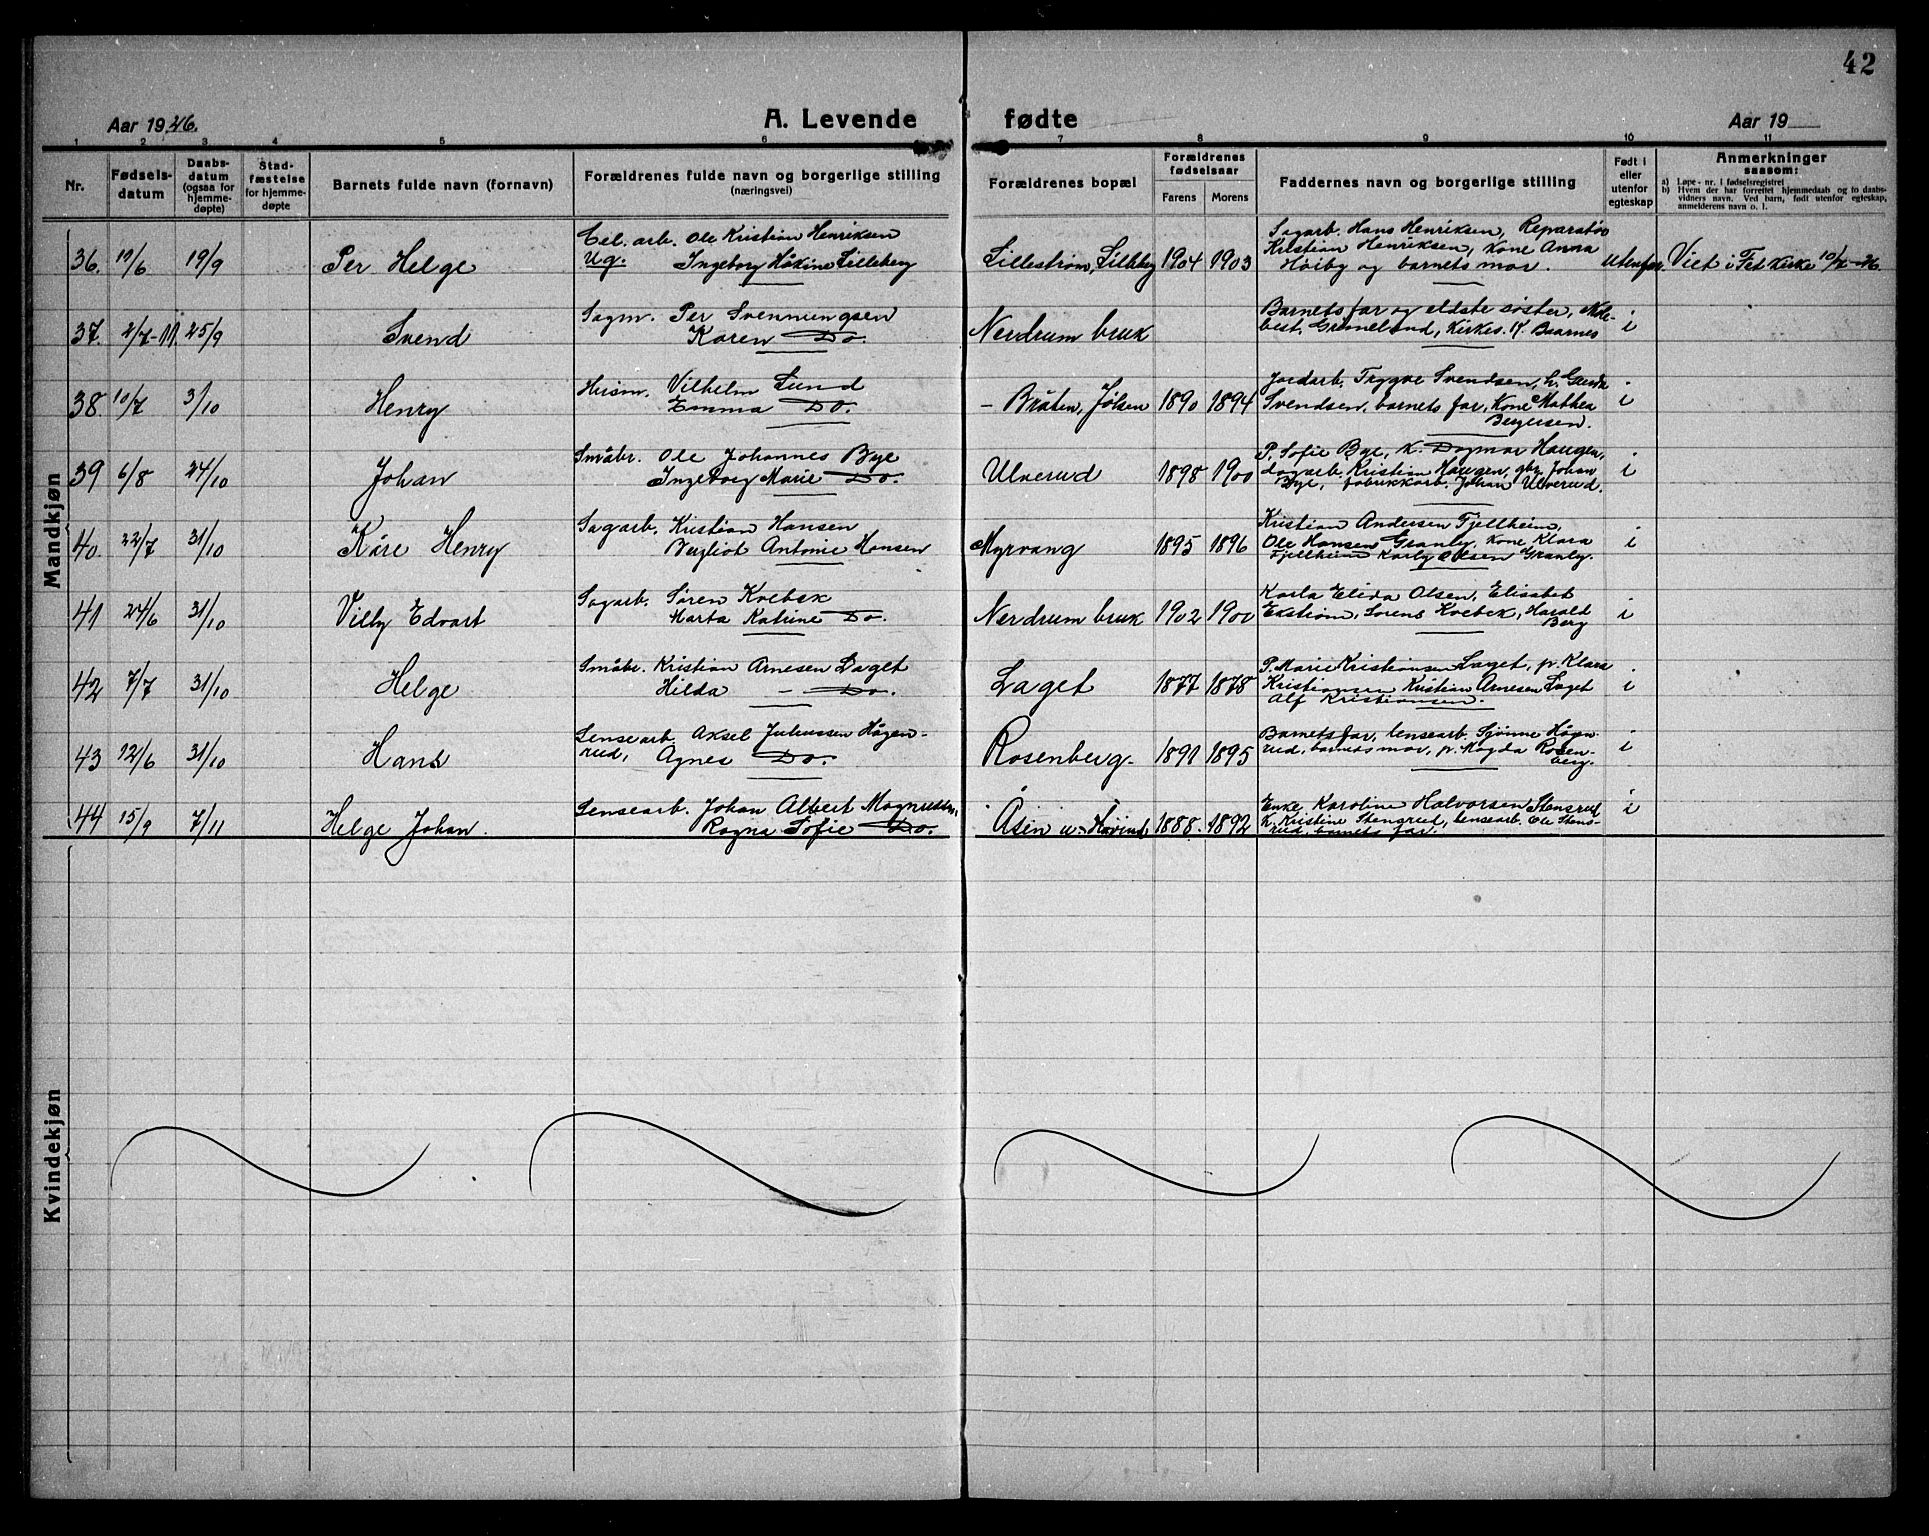 42
Aar 1926.
A. Levende fødte
Aar 19
1 2 3 4 5 6 7 8 9 10 11
Nr.
Fødsels-
datum
Daabs-
datum
(ogsaa for
hjemme-
døpte)
Stad-
fæstelse
for hjemme-
døpte
Barnets fulde navn (fornavn)
Forældrenes fulde navn og borgerlige stilling
(næringsvei)
Forældrenes bopæl
Forældrenes
fødselsaar
Farens Morens
Faddernes navn og borgerlige stilling
Født i
eller
utenfor
egteskap
Anmerkninger
saasom:
a) Løpe-nr. i fødselsregistret
b) Hvem der har forrettet hjemmedaab og to daabs-
vidners navn. Ved barn, født utenfor egteskap,
anmelderens navn o. l.
Mandkjøn
36. 19/6 19/9 Per Helge
Cel. arb. Ole Kristian Henriksen
Ug. Ingeborg Håkine Lilleberg
Lillestrøm, Lilleberg 1904 1903
Sagarb. Hans Henriksen, Reparatør
Kristian Henriksen, Kone Anna
Høiby og barnets mor.
utenfor Viet i Fet kirke 10/7-26.
37. 2/7 25/9 Svend
Sagm. Per Svenningsen
Karen Do.
Nerdrum bruk
Barnets far og eldste søster,
best. Grimelund, Kirkes. K. Baarnes
i
38. 10/7 3/10 Henry
Husm. Vilhelm Lund
Emma Do.
- Bråten, Jølsen 1890 1894
Jordarb. Trygve Svendsen, h. Gunda
Svendsen, barnets far, Kone Mathea
Bergersen.
i
39 6/8 24/10 Johan
Småbr. Ole Johannes Bye
Ingeborg Marie Do.
Ulverud 1898 1900
P. Sofie Bye, K. Dagmar Haugen,
dagarb. Kristian Haugen, gbr. Johan
Bye, fabrikkarb. Johan Ulverud.
i
40. 22/7 31/10 Kåre Henry
Sagarb. Kristian Hansen
Bergliot Antonie Hansen
Myrvang 1895 1896
Kristian Andersen Fjellheim,
Ole Hansen Granby, Kone Klara
Fjellheim Karly Olsen Granby.
i
41 24/6 31/10 Villy Edvart
Sagarb. Søren Kvebek
Marta Katrine Do.
Nerdrum bruk 1902 1900
Karla Elida Olsen, Elisabet
Ekstrøm, Sørens Kvebek, Harald
Berg
i
42 7/7 31/10 Helge
Småbr. Kristian Arnesen Laget
Hilda - Do.
Laget 1877 1878
P. Marie Kristiansen Laget, p. Klara
Kristiansen Kristian Arnesen Laget
Alf Kristiansen.
i
43 12/6 31/10 Hans
Lensearb. Aksel Juliussen Høgen-
rud, Agnes Do.
Rosenberg. 1891 1895
Barnets far, lensearb. Sjønne Høgen-
rud, barnets mor, p. Magda Rosen-
berg.
i
44 15/9 7/11 Helge Johan.
Lensearb. Johan Albert Magnussen,
Ragna Sofie Do.
Åsen u. Hovind 1888. 1892
Enke Karoline Halvorsen Stensrud
K. Kristine Stensrud, lensearb. Ole Stens-
rud, barnets far.
i
Kvindekjøn